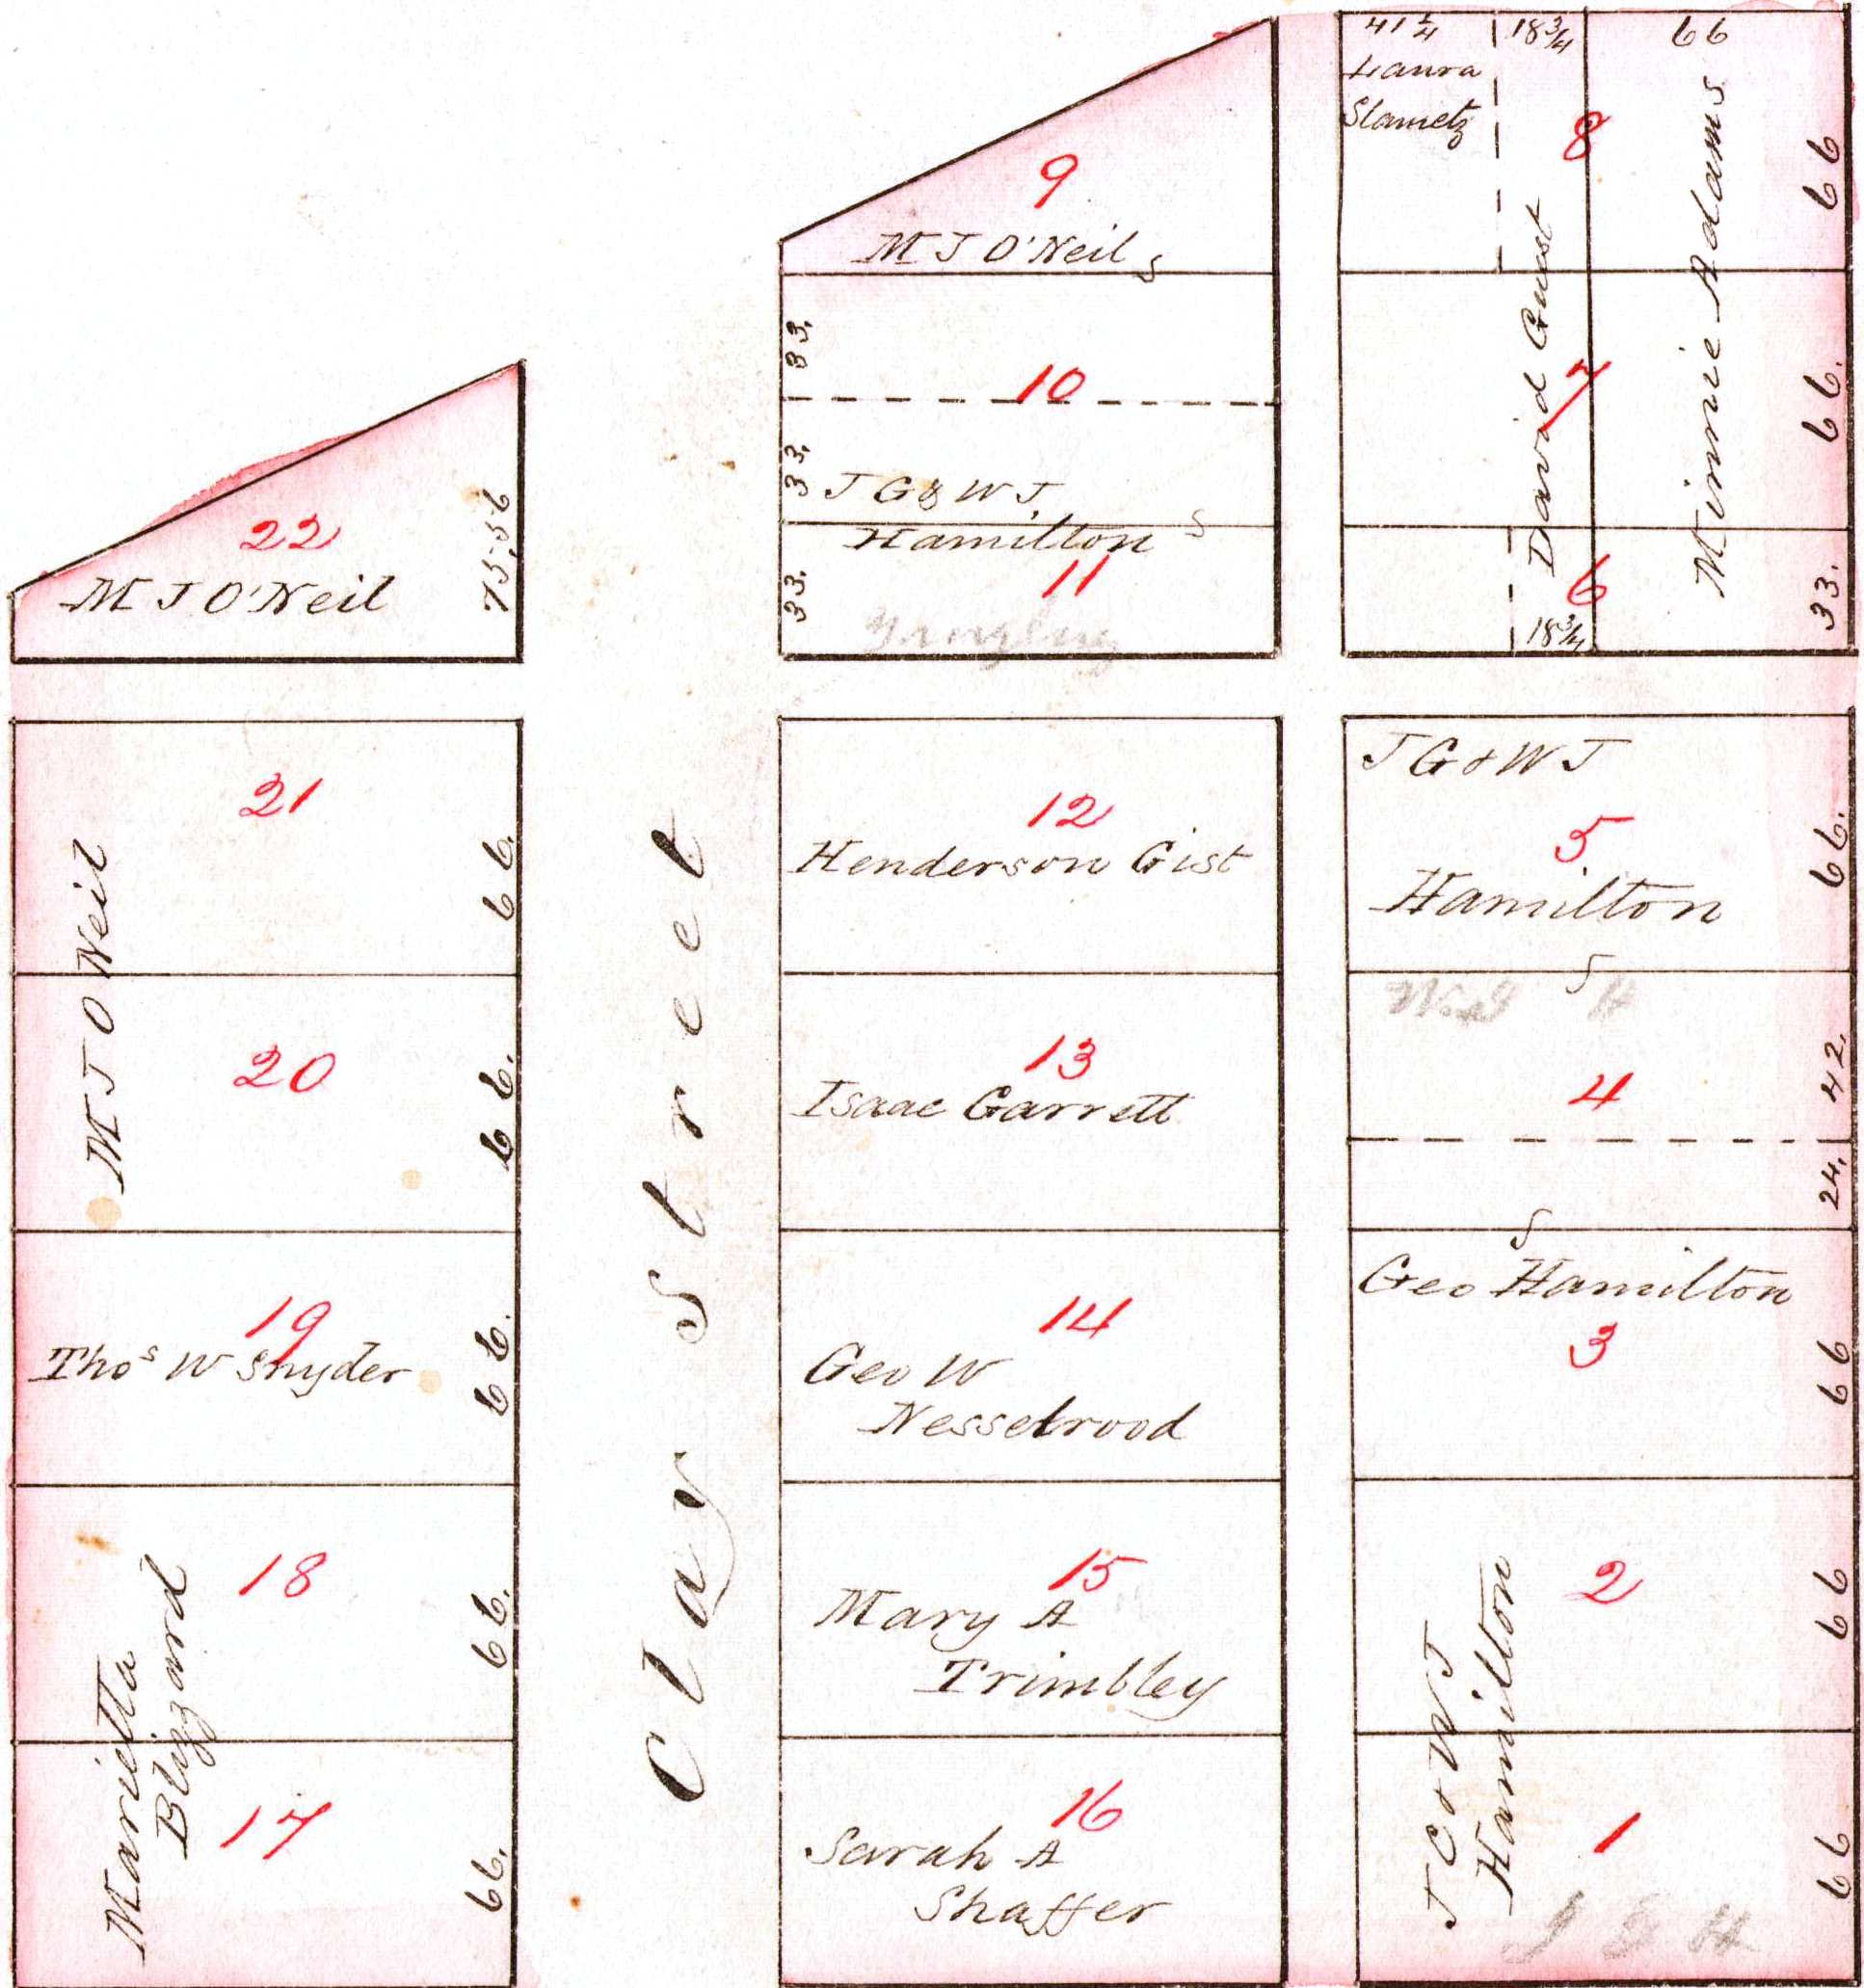 22
M J O'Neil
75.56
21
66.
M J O Neil
20
66.
19
Thoˢ W Snyder
66.
18
66.
Marietta
Blizzard
17
66.
Clay Street
9
M J O'Neil
33.
10
33.
J G & W J
Hamilton
11
33.
12
Henderson Gist
13
Isaac Garrett
14
Geo W
Nesselrood
15
Mary A
Trimbley
16
Sarah A
Shaffer
41 1/4
18 3/4
66
Laura
Slametz
8
66
David Gust
Minnie Adams
7
66.
6
33.
18 3/4
J G & W J
5
Hamilton
66.
4
42.
24.
Geo Hamilton
3
66
2
66
Hamilton
1
66